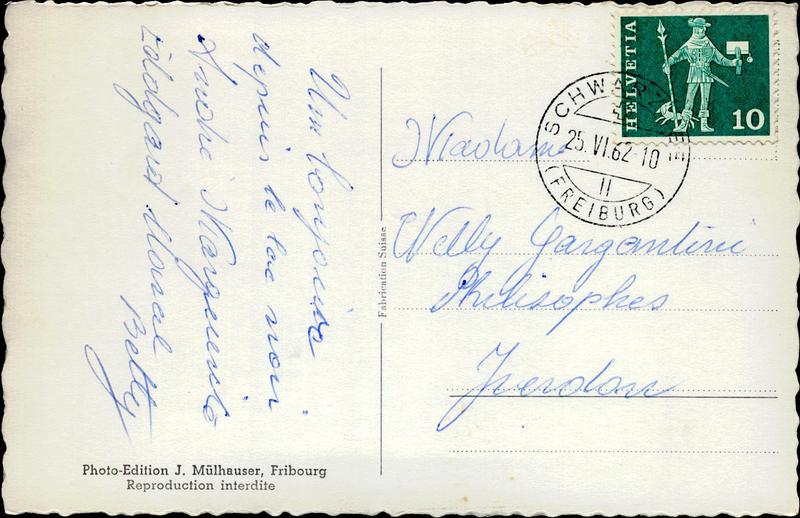 Un bonjour
depuis le lac noir
André Marguerite
Marcel
Betty
Photo-Edition J. Mülhauser, Fribourg
Reproduction interdite
Fabrication Suisse
HELVETIA
10
SCHWARZSEE
25.VI.62-10
II
(FREIBURG)
Madame
Willy Gargantini
Philisophes
Yverdon